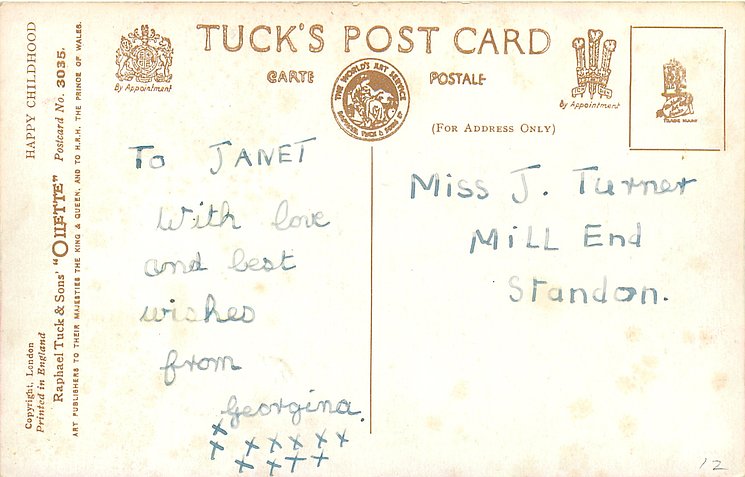 TUCK'S POST CARD
CARTE POSTALE
By Appointment
THE WORLD'S ART SERVICE
RAPHAEL TUCK & SONS LD
By Appointment
(FOR ADDRESS ONLY)
HAPPY CHILDHOOD
Copyright, London
Printed in England
Raphael Tuck & Sons' "OILETTE" Postcard No. 3035.
ART PUBLISHERS TO THEIR MAJESTIES THE KING & QUEEN, AND TO H.R.H. THE PRINCE OF WALES.
To JANET
With love
and best
wishes
from
Georgina.
x
x x x x x x
x x x x
Miss J. Turner
Mill End
Standon.
12